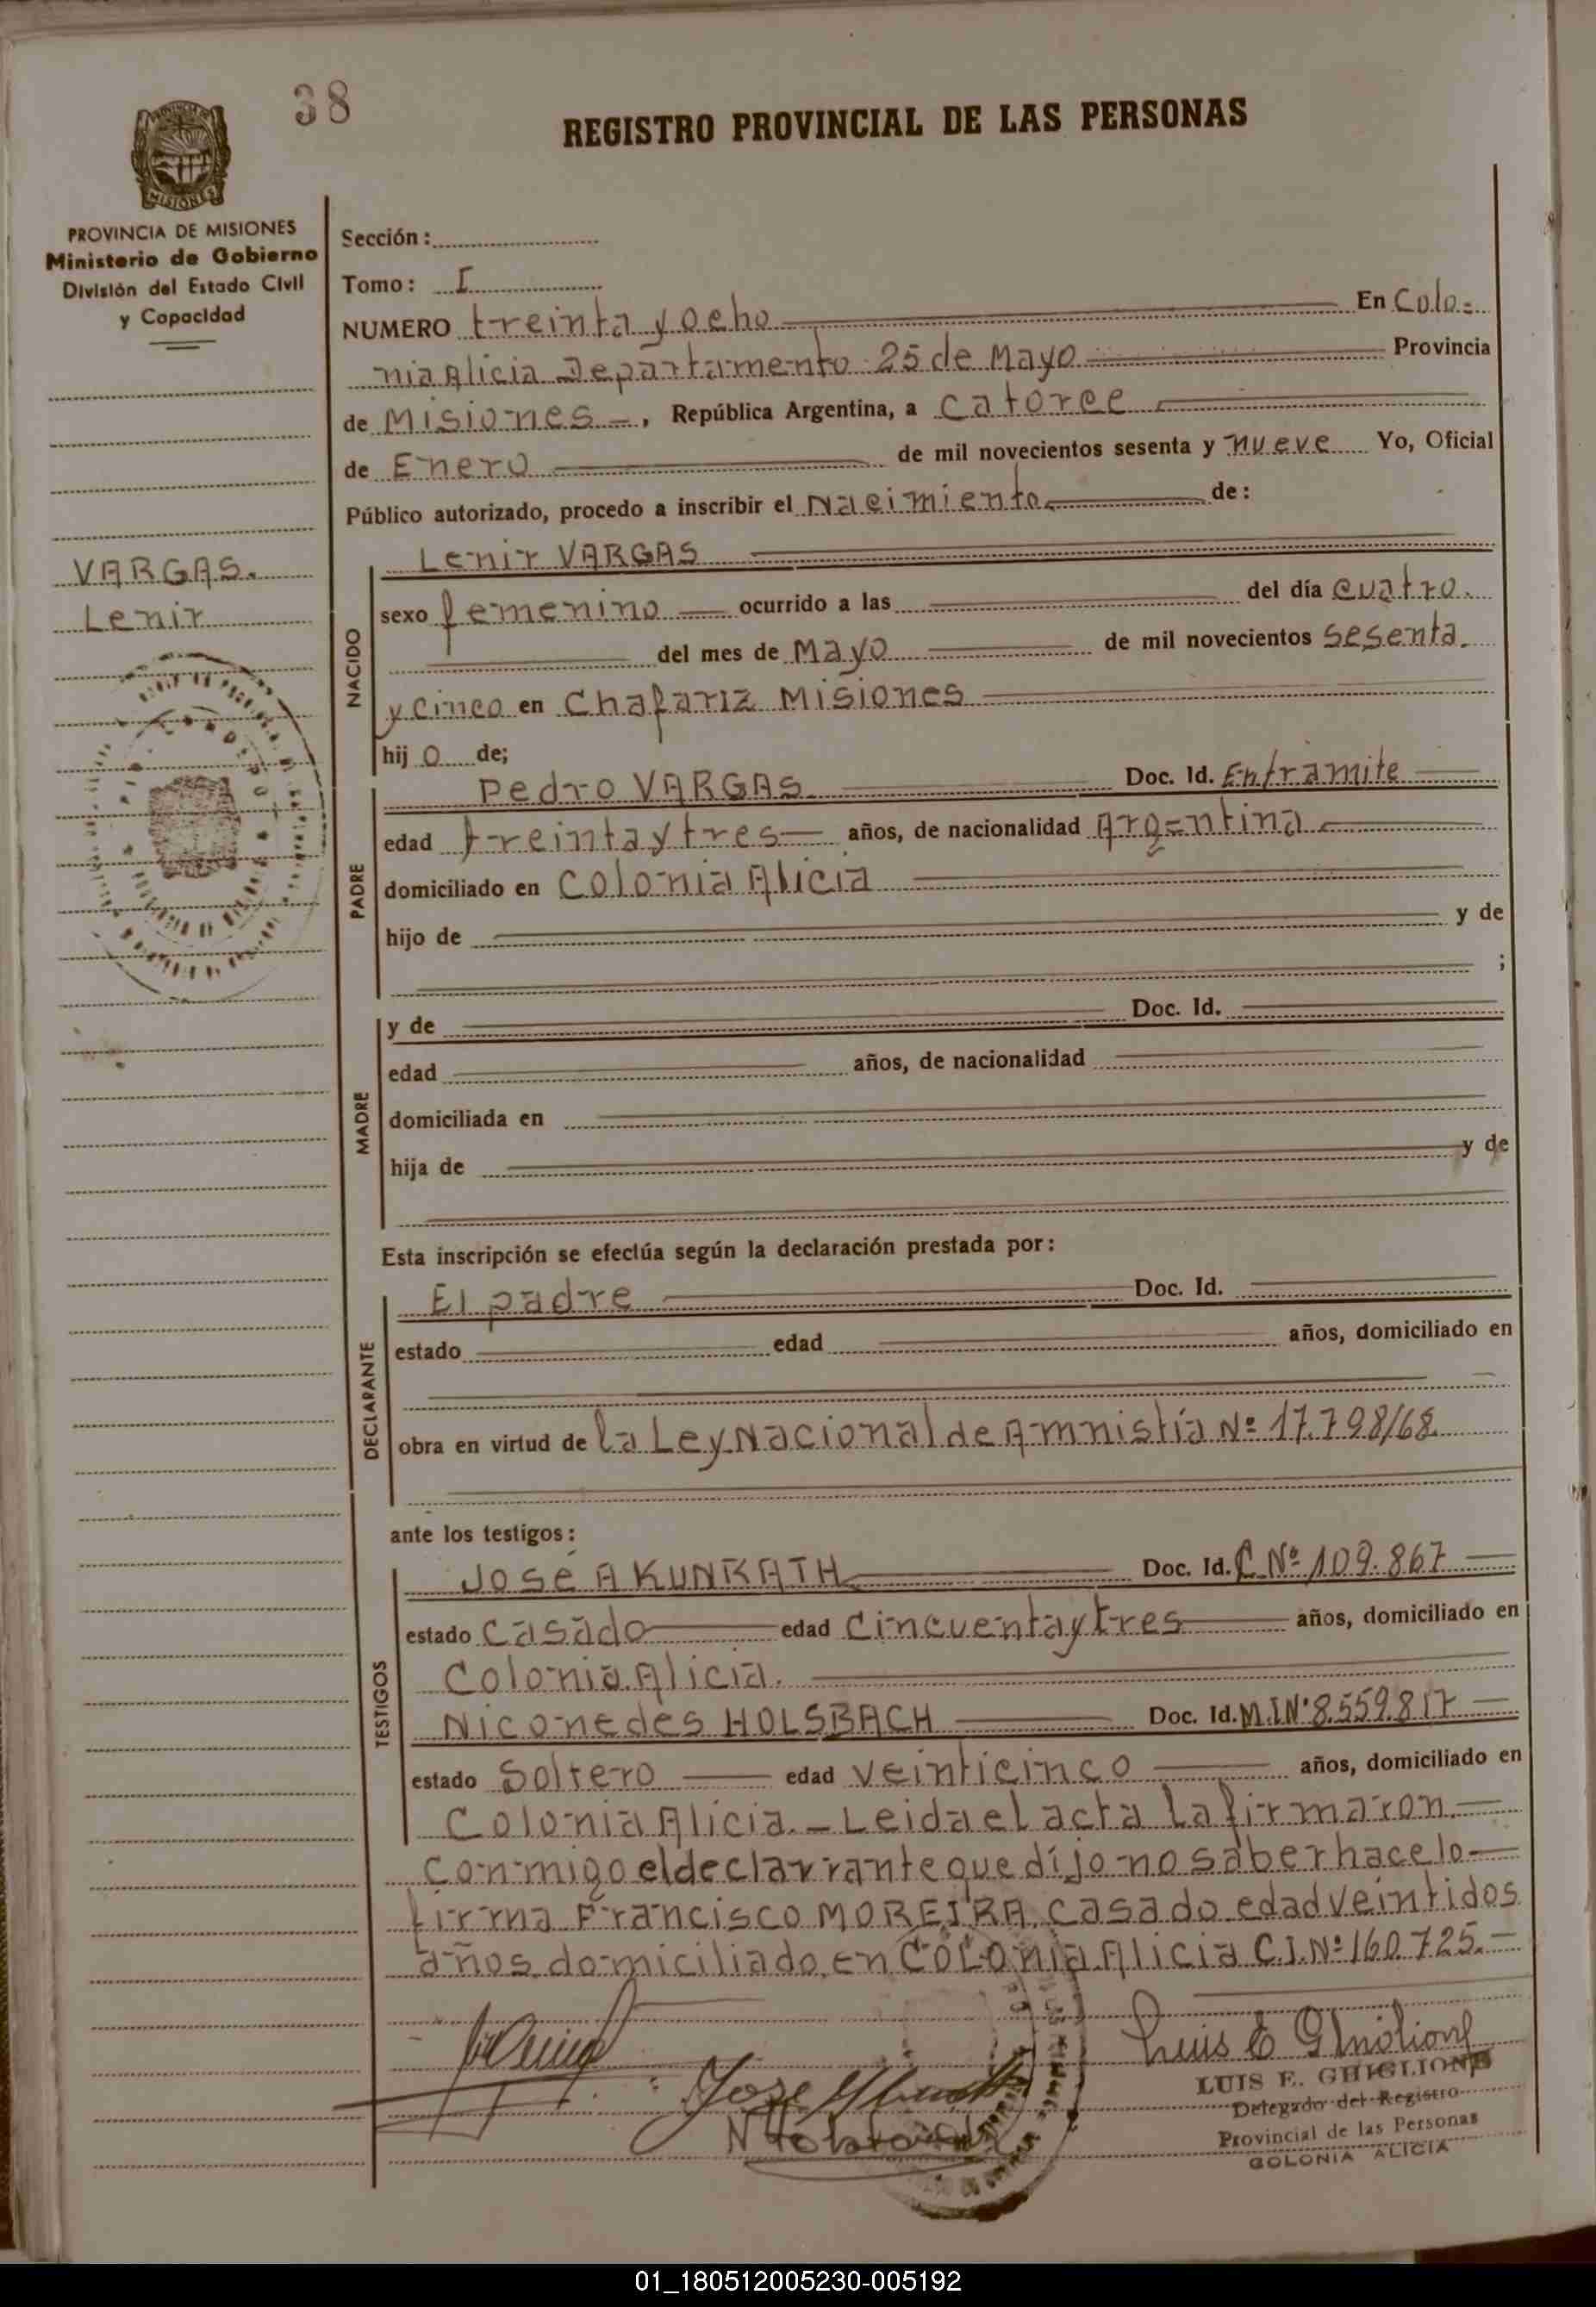 38
REGISTRO PROVINCIAL DE LAS PERSONAS
MISIONES
PROVINCIA DE MISIONES
Ministerio de Gobierno
División del Estado Civil
y Capacidad
VARGAS.
Lenir
Sección:
Tomo: I
NUMERO treinta y ocho En Colo=
nia Alicia Departamento 25 de Mayo Provincia
de Misiones -, República Argentina, a catorce
de Enero de mil novecientos sesenta y nueve Yo, Oficial
Público autorizado, procedo a inscribir el Nacimiento de:
NACIDO
Lenir VARGAS
sexo femenino ocurrido a las del día cuatro.
del mes de Mayo de mil novecientos sesenta.
y cinco en Chafariz Misiones
hij o de;
PADRE
Pedro VARGAS Doc. Id. En tramite
edad treinta y tres años, de nacionalidad Argentina
domiciliado en Colonia Alicia
hijo de y de
;
MADRE
y de Doc. Id.
edad años, de nacionalidad
domiciliada en
hija de y de
Esta inscripción se efectúa según la declaración prestada por:
DECLARANTE
El padre Doc. Id.
estado edad años, domiciliado en
obra en virtud de la Ley Nacional de Amnistía Nº 17.798/68.
ante los testigos:
TESTIGOS
José A KUNRATH Doc. Id. C Nº 109.867
estado Casado edad Cincuenta y tres años, domiciliado en
Colonia Alicia.
Niconedes HOLSBACH Doc. Id. M.I.Nº 8.559.817
estado Soltero edad veinticinco años, domiciliado en
Colonia Alicia.- Leida el acta la firmaron.-
conmigo el declarrante que díjo no saber hacelo-
firma Francisco MOREIRA, casado edad veintidos
años domiciliado en COLonia Alicia C.I.Nº 160.725.-
Luis E Ghiglione
LUIS E. GHIGLIONE
Delegado del Registro
Provincial de las Personas
COLONIA ALICIA
01_180512005230-005192